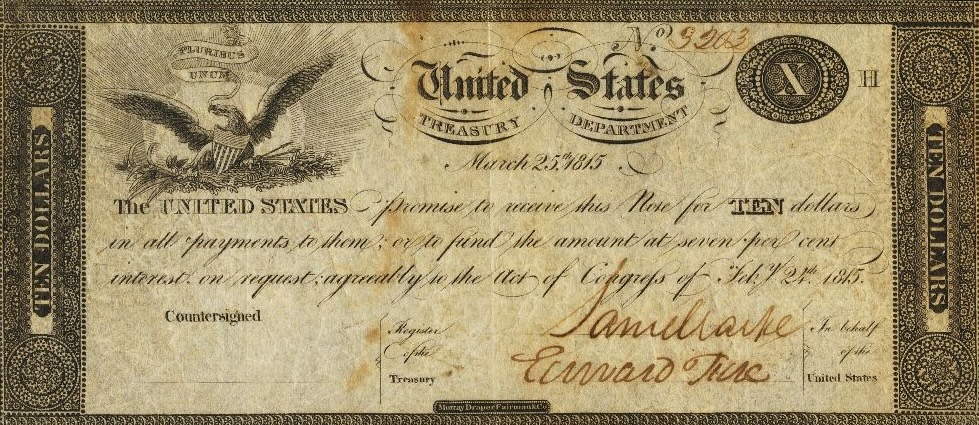 PLURIBUS
UNUM
No. 9263
United States
TREASURY DEPARTMENT
X
H
March 25th 1815
The UNITED STATES promise to receive this Note for TEN dollars
in all payments to them; or to fund the amount at seven per cent
interest, on request; agreeably to the Act of Congress of Feb.y 24th 1815.
Countersigned
Register
of the
Treasury
In behalf
of the
United States
TEN DOLLARS
TEN DOLLARS
Murray Draper Fairman & Co